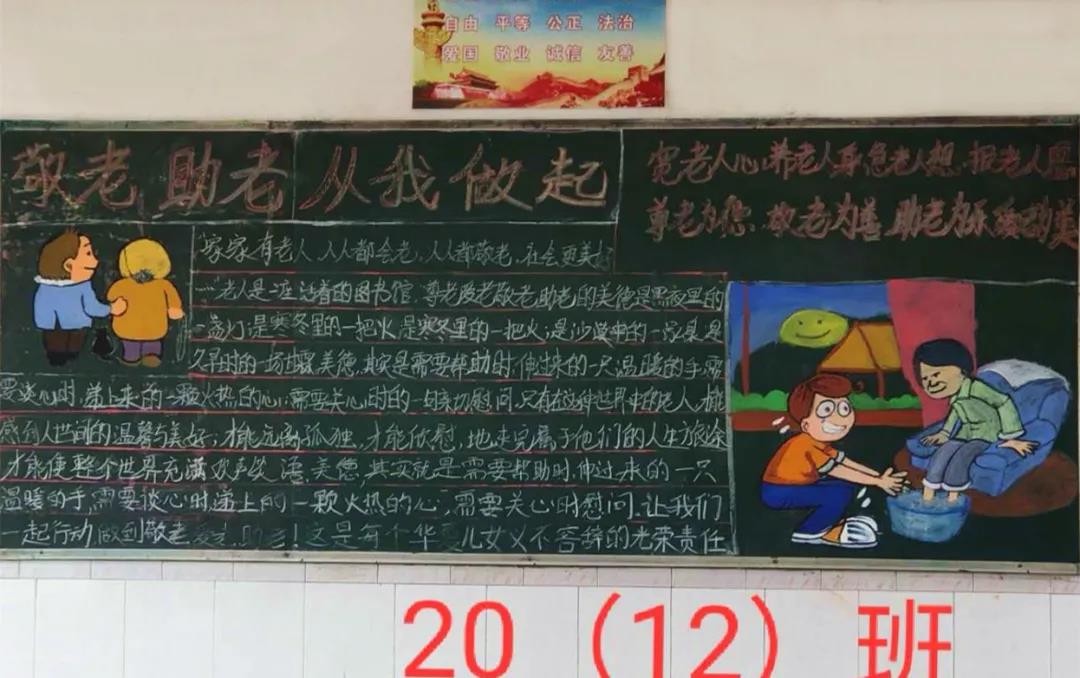 自由 平等 公正 法治
爱国 敬业 诚信 友善
敬老 助老 从我做起
宽老人心,养老人身,急老人想,报老人恩
尊老为你,敬老为善,助老为乐,美
家家有老人,人人都会老,人人都敬老,社会更美好
老人是一座活着的图书馆,尊老爱老敬老助老的美德是黑夜里的
一盏灯;是寒冬里的一把火,是寒冬里的一把火;是沙漠中的一泉是
久旱时的一场甘霖,美德,其实是需要帮助时,伸过来的一只温暖的手,需
要谈心时,递上来的一颗火热的心;需要关心时的一句亲切慰问,只有在这种世界中的老人,才能
感到人世间的温馨与美好;才能远离孤独,才能欣慰,地走完属于他们的人生旅途
才能使整个世界充满欢声笑语,美德,其实就是需要帮助时,伸过来的一只
温暖的手,需要谈心时递上的一颗火热的心,需要关心时慰问.让我们
一起行动做到敬老爱老,助老!这是每个华夏儿女义不容辞的光荣责任
20(12)班